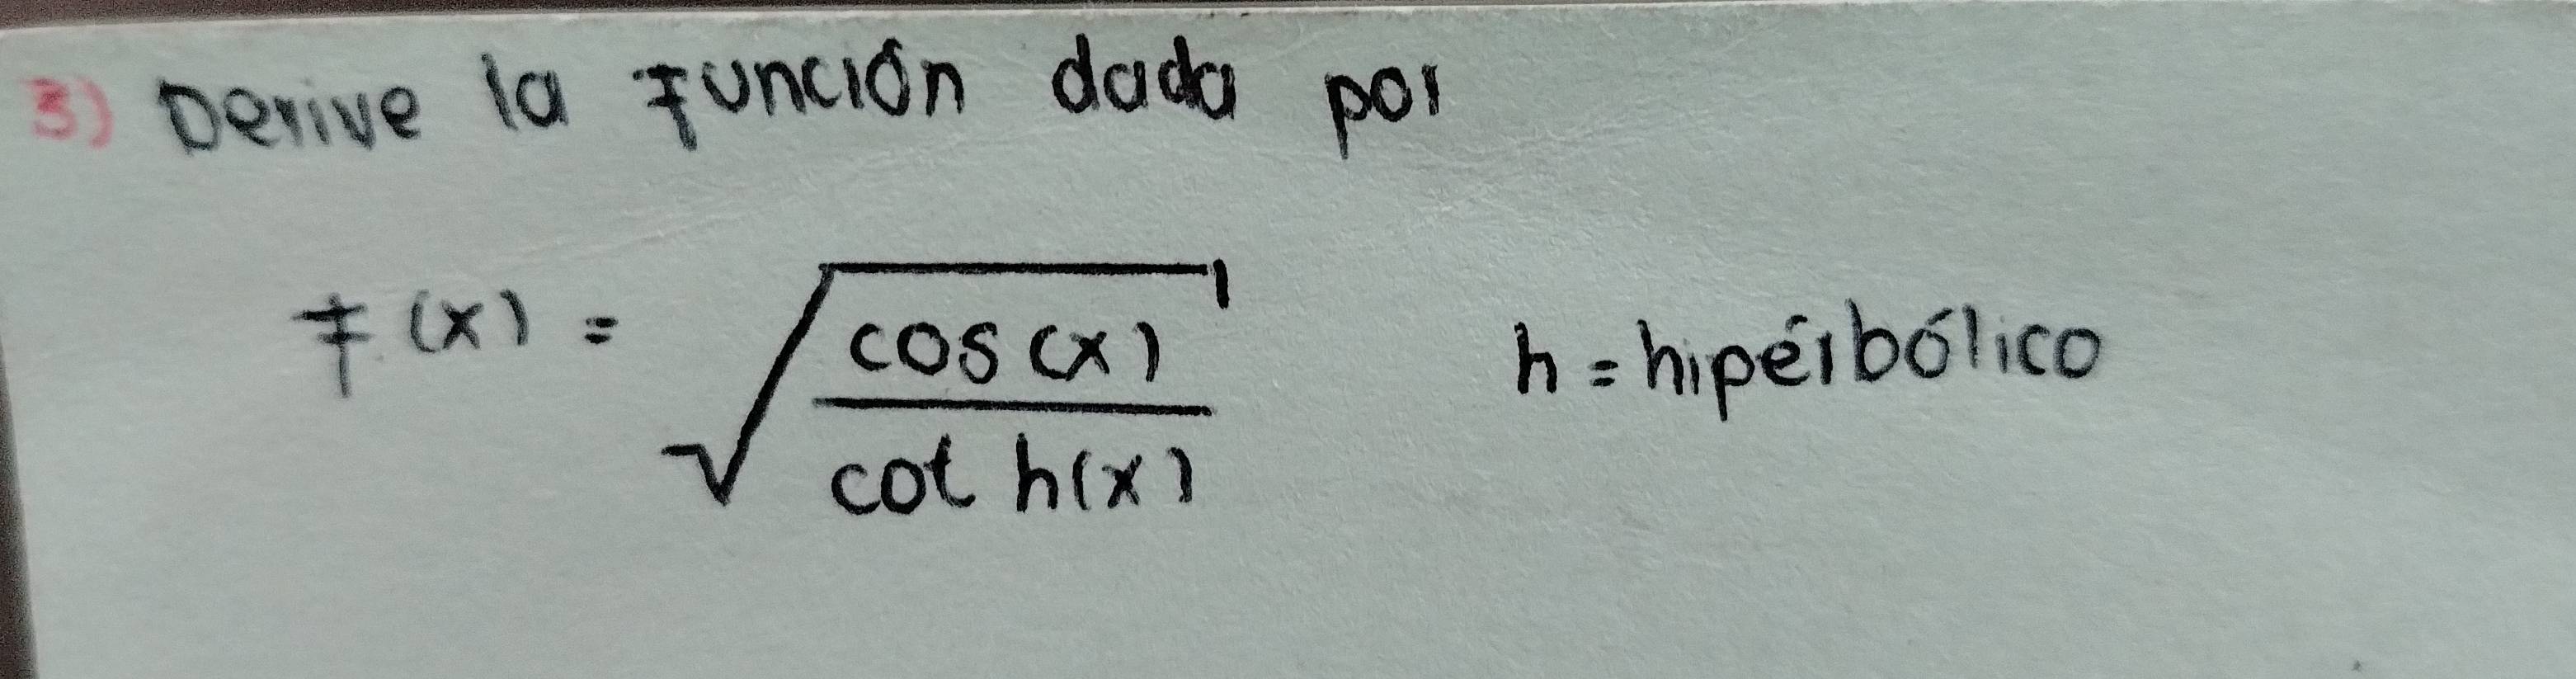 3) Derive la función dada por
f(x) = √(cos(x) / cot h(x))    h = hipérbólico